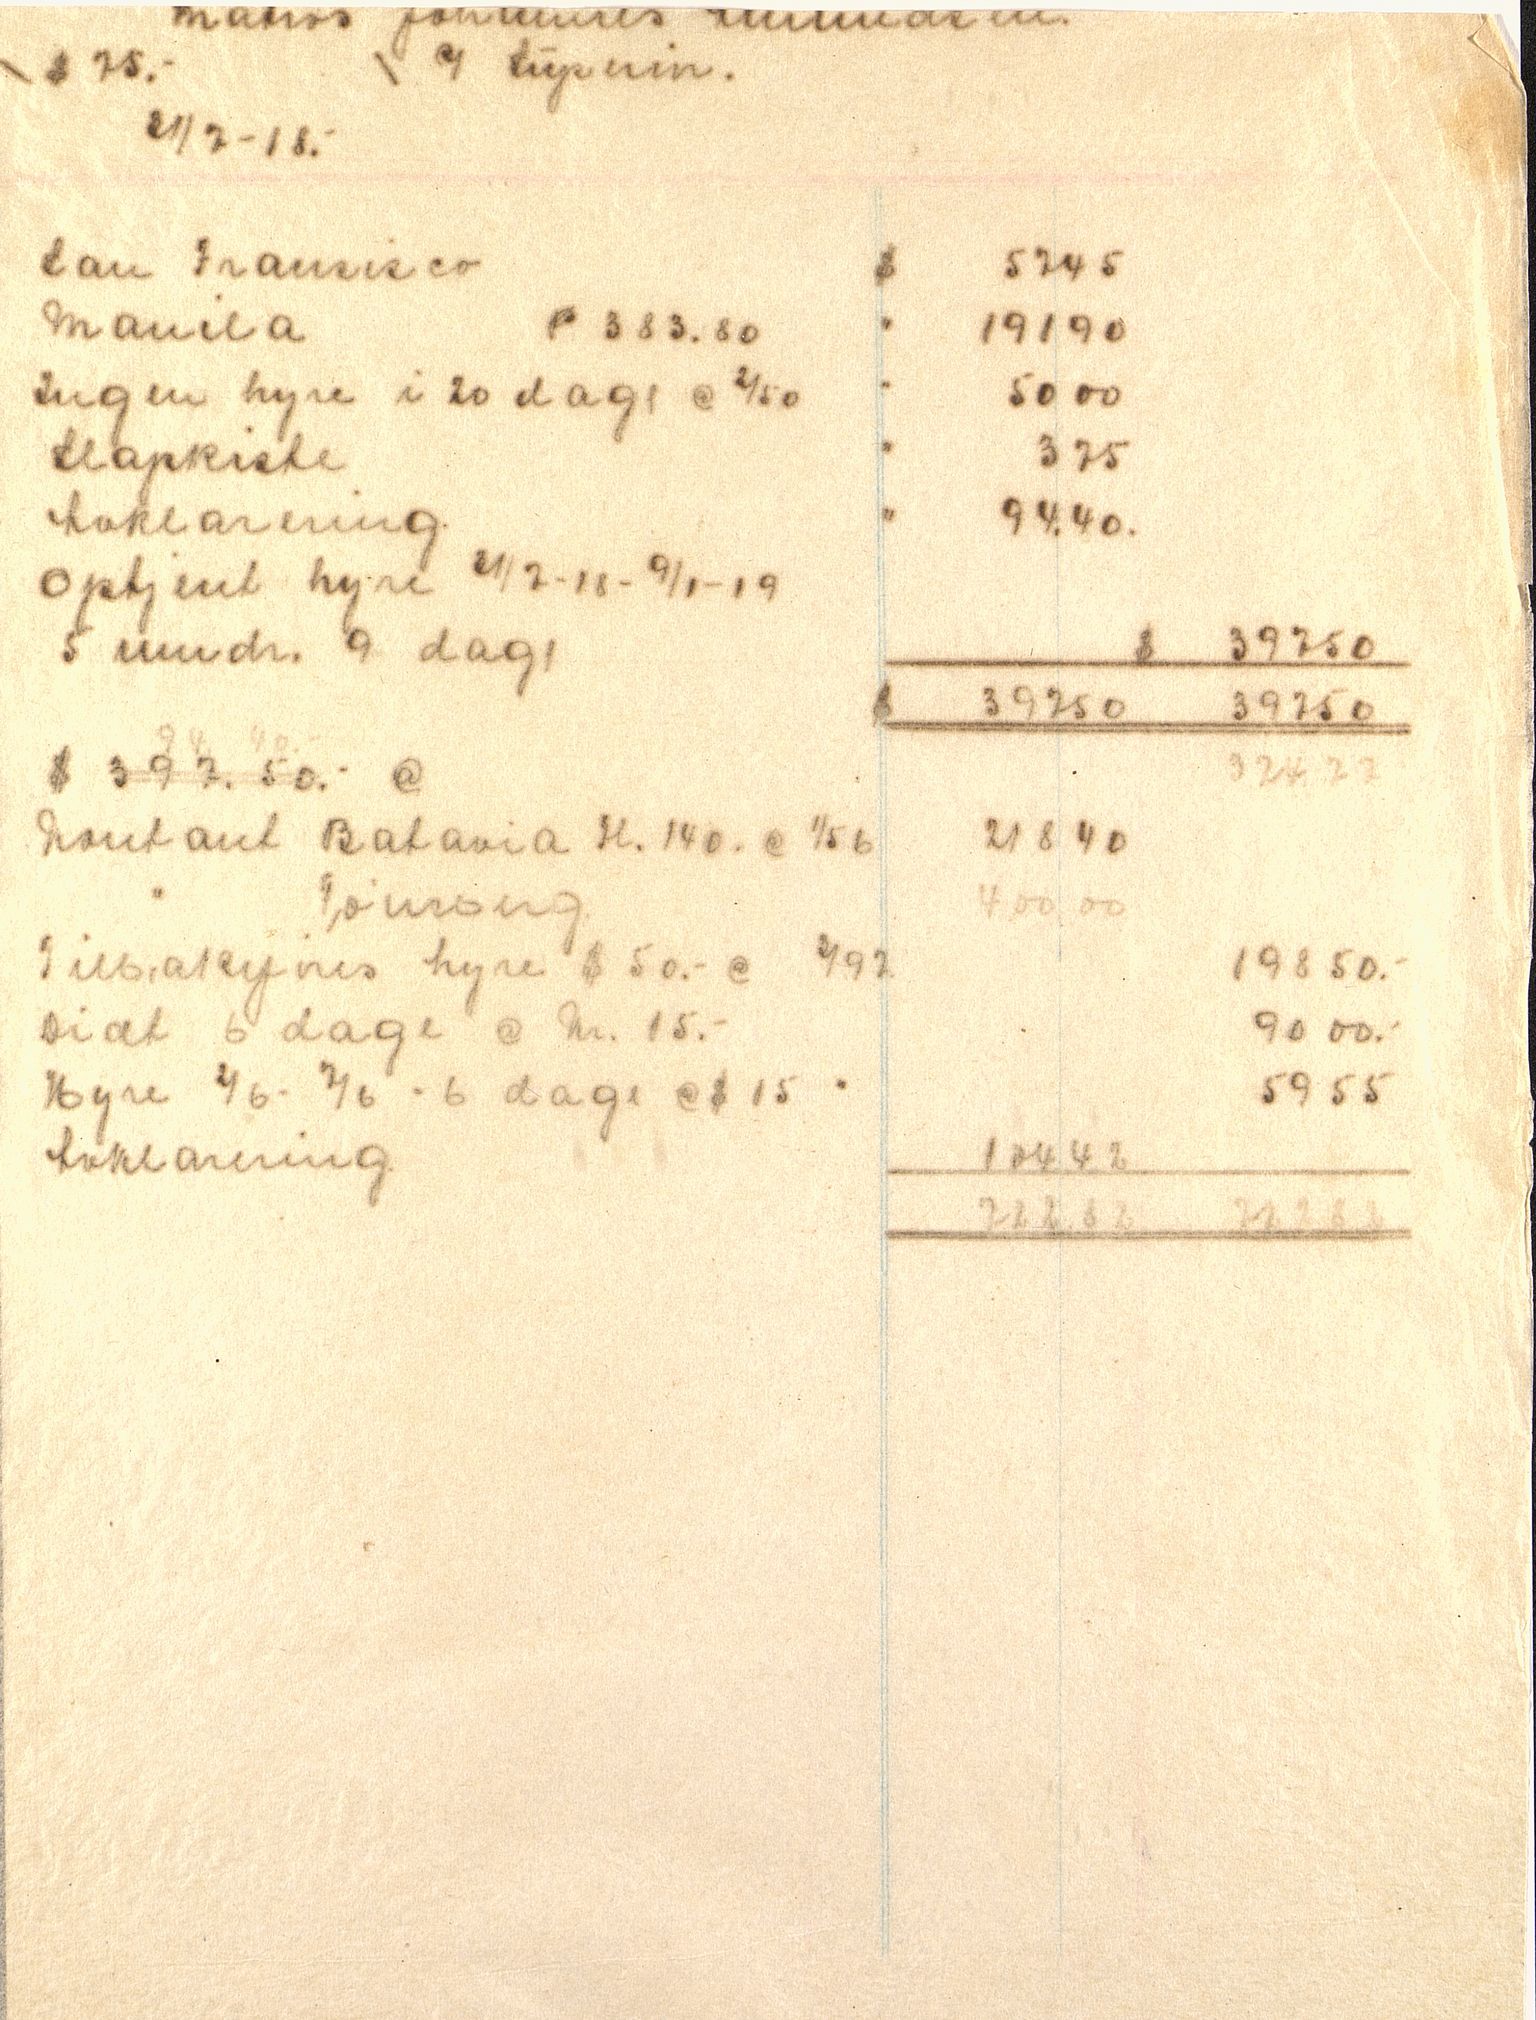 Matros Johannes
$ 75.- \ 4 Superior.
31/7-18.-
San Fransisco $ 57 45
Manila P 383.80 " 191 90
Ingen hyre i 20 dage @ 2/50 " 50 00
Slapkiste " 3 75
Avklarering " 94.40.
Optjent hyre 31/7-18 - 9/1-19
5 mndr. 9 dage $ 397 50
$ 397 50 397 50
94. 40.-
$ 397. 50.- @ 374.77
Kontant Batavia Fl. 140. @ 1/56 218 40
" Tønsberg 400 00
Tilbakejries hyre $ 50.- @ 3/97 198 50.-
Diæt 6 dage @ Kr. 15.- 90 00.-
Hyre 2/6 - 7/6 - 6 dage @ $ 15 " 59 55
Avklarering 104 42
722.82 722 82